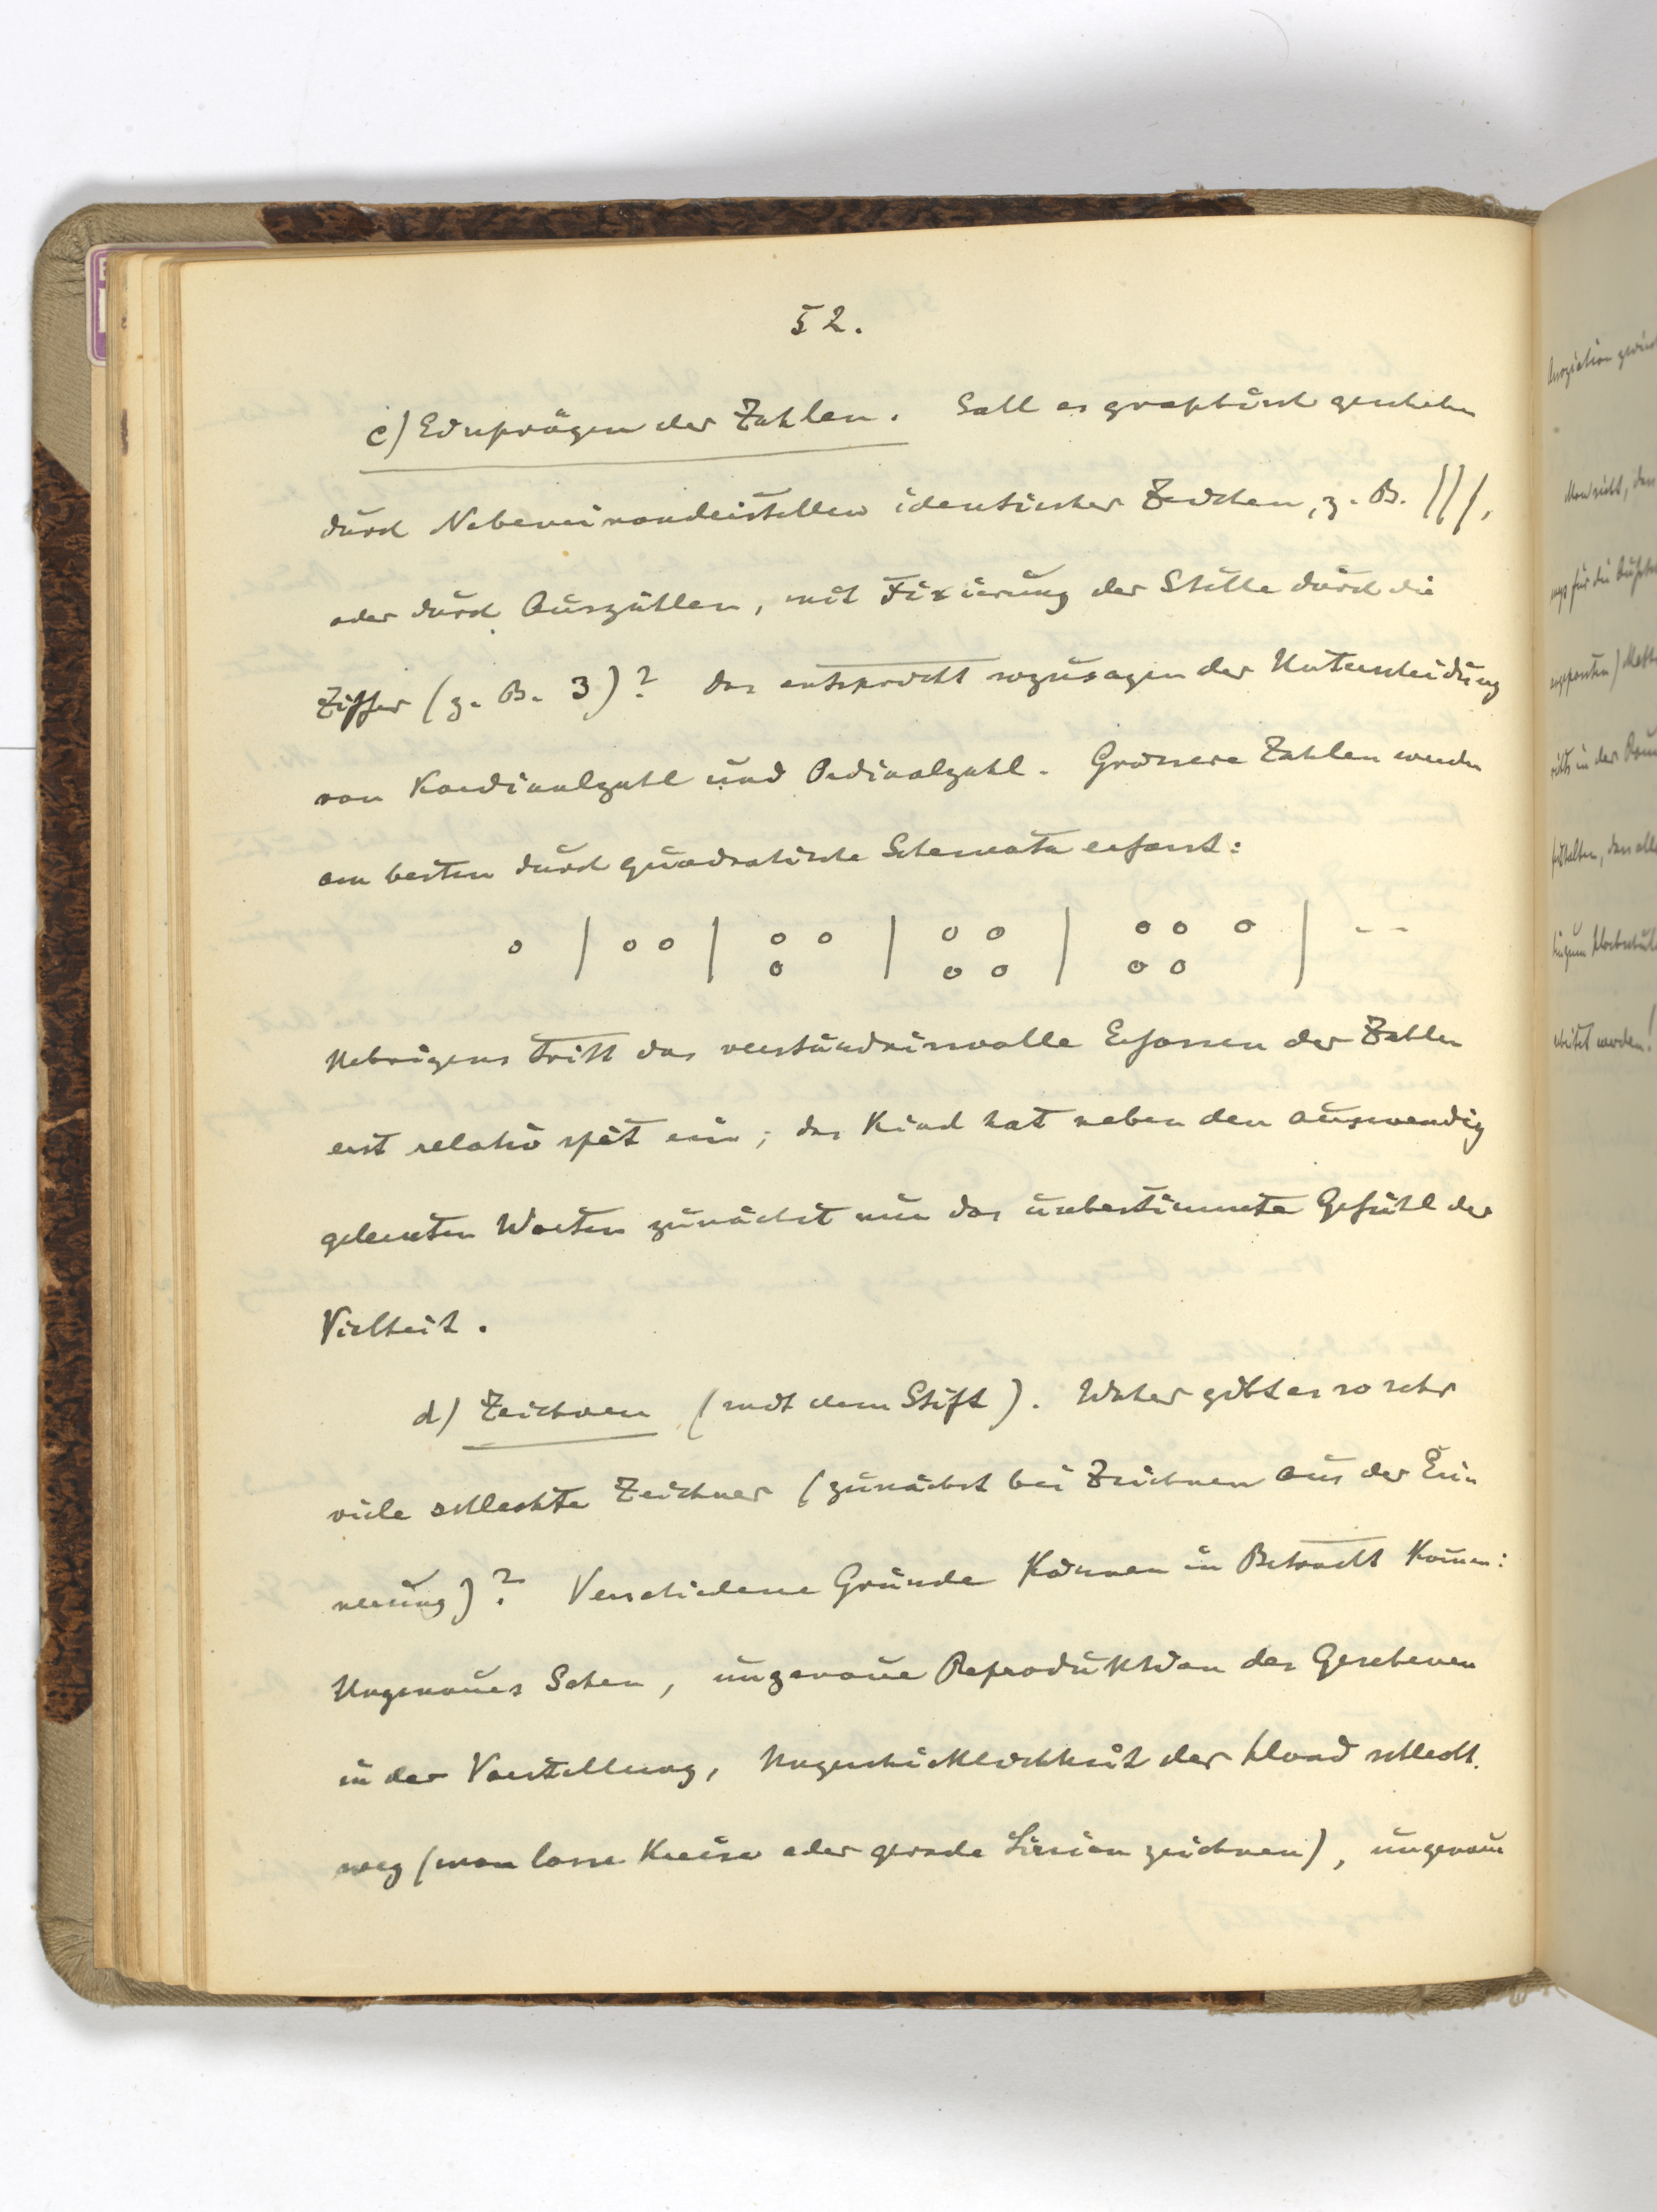 52.
c) Einprägen der Zahlen. Soll es graphisch geschehen
durch Nebeneinanderstellen identischer Zeichen, z. B. |||,
oder durch Auszählen, mit Fixierung der Stelle durch die
Ziffer (z. B. 3)? Das entspricht sozusagen der Unterscheidung
von Kardinalzahl und Ordinalzahl. Grössere Zahlen werden
am besten durch quadratische Schemata erfasst:
o | o o | o o | o o | o o o | - -
o o o o o
Uebrigens tritt das verständnisvolle Erfassen der Zahlen
erst relativ spät ein; das Kind hat neben den auswendig
gelernten Worten zunächst nur das unbestimmte Gefühl der
Vielheit.
d) Zeichnen (mit dem Stift). Woher gibt es so sehr
viele schlechte Zeichner (zunächst bei Zeichnen aus der Erin
nerung)? Verschiedene Gründe können in Betracht kommen:
Ungenaues Sehen, ungenaue Reproduktion des Gesehenen
in der Vorstellung, Ungeschicklichkeit der Hand schlecht.
weg (man lasse Kreise oder gerade Linien zeichnen), ungenaue
Assoziation
Man sieht, dass
für die
in der
dass alle
werden!